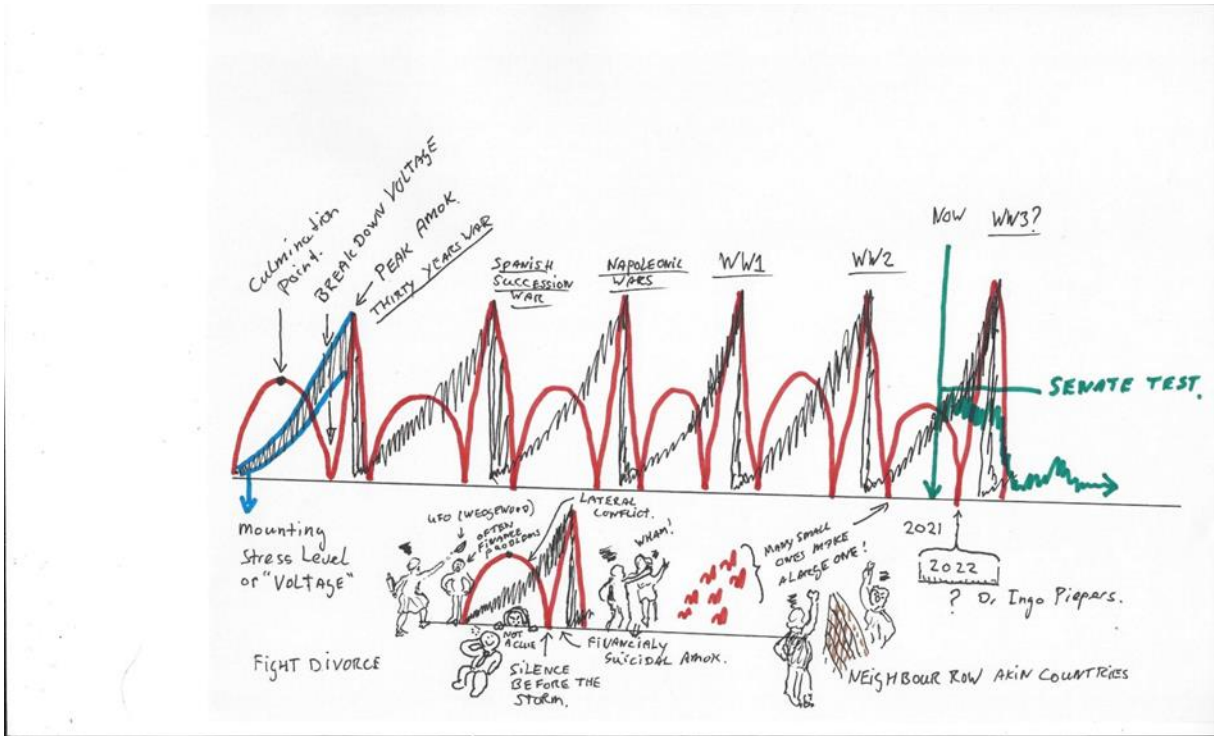 Culmination
Point.
BREAKDOWN VOLTAGE
PEAK AMOK.
THIRTY YEARS WAR
SPANISH
SUCCESSION
WAR
NAPOLEONIC
WARS
WW1
WW2
NOW
WW3?
SENATE TEST.
mounting
Stress Level
or "VOLTAGE"
UFO (WEDGEWOOD)
OFTEN
FINANCE
PROBLEMS
LATERAL
CONFLICT.
WHAM!
MANY SMALL
ONES MAKE
A LARGE ONE!
2021
2022
? Dr Ingo Piepers.
NOT
A CLUE
FIGHT DIVORCE
SILENCE
BEFORE THE
STORM.
FINANCIALY
SUICIDAL AMOK.
NEIGHBOUR ROW AKIN COUNTRIES